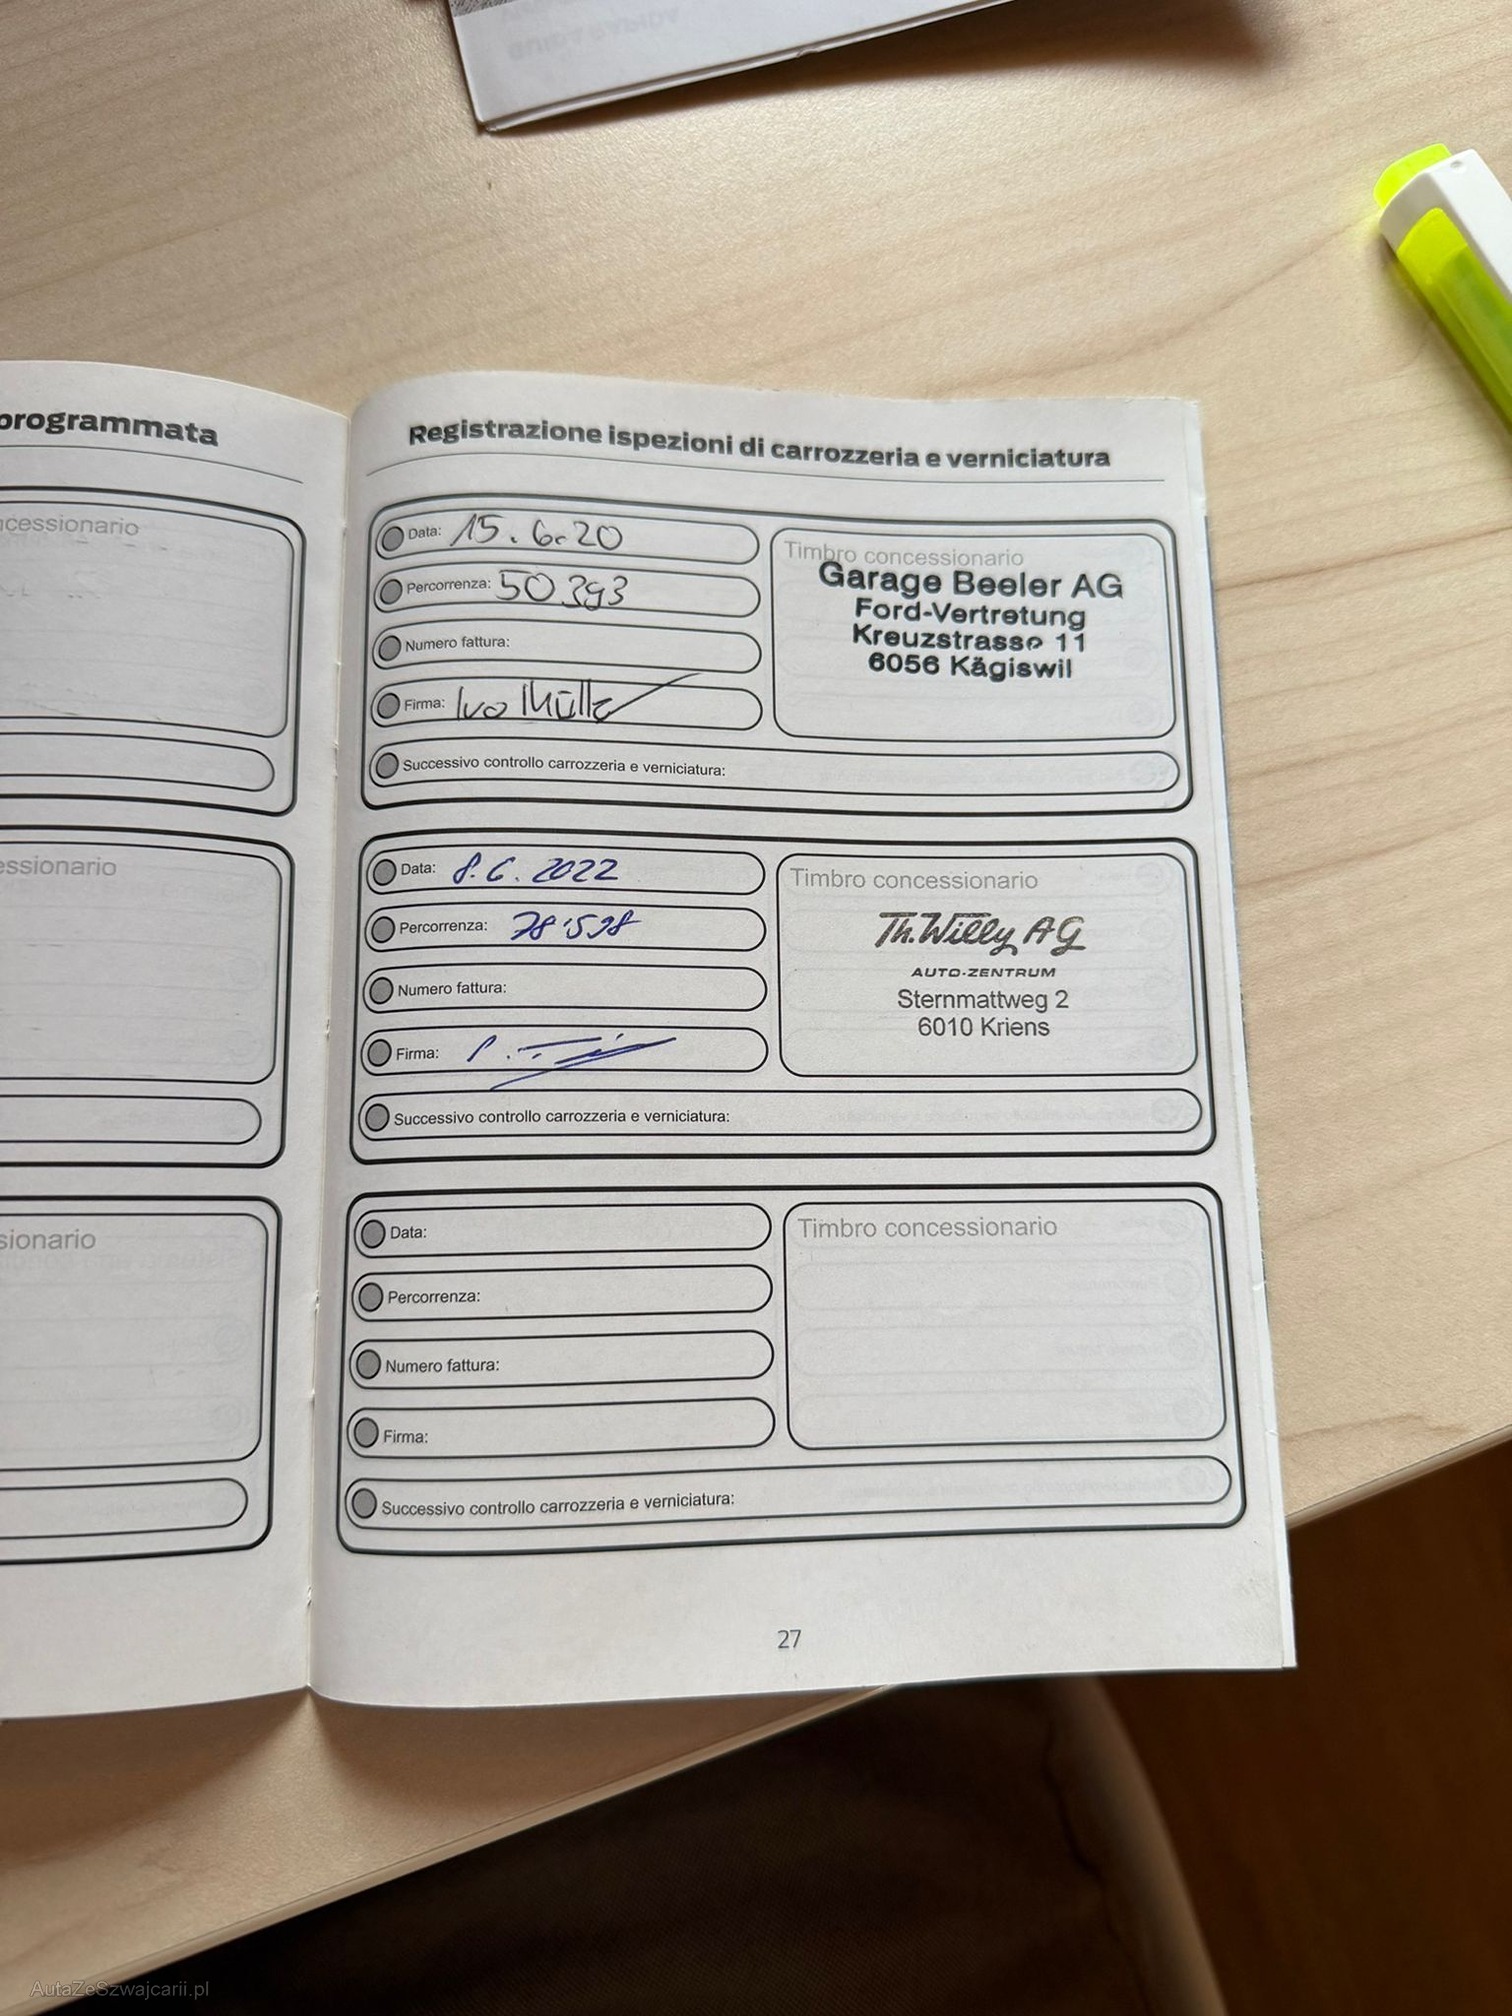 programmata
ncessionario
essionario
sionario
Registrazione ispezioni di carrozzeria e verniciatura
Data: 15.6.20
Percorrenza: 50393
Numero fattura:
Firma: Ivo Müller
Successivo controllo carrozzeria e verniciatura:
Timbro concessionario
Garage Beeler AG
Ford-Vertretung
Kreuzstrasse 11
6056 Kägiswil
Data: 8.6.2022
Percorrenza: 78'598
Numero fattura:
Firma:
Successivo controllo carrozzeria e verniciatura:
Timbro concessionario
Th.Willy AG
AUTO-ZENTRUM
Sternmattweg 2
6010 Kriens
Data:
Percorrenza:
Numero fattura:
Firma:
Successivo controllo carrozzeria e verniciatura:
Timbro concessionario
27
AutaZeSzwajcarii.pl